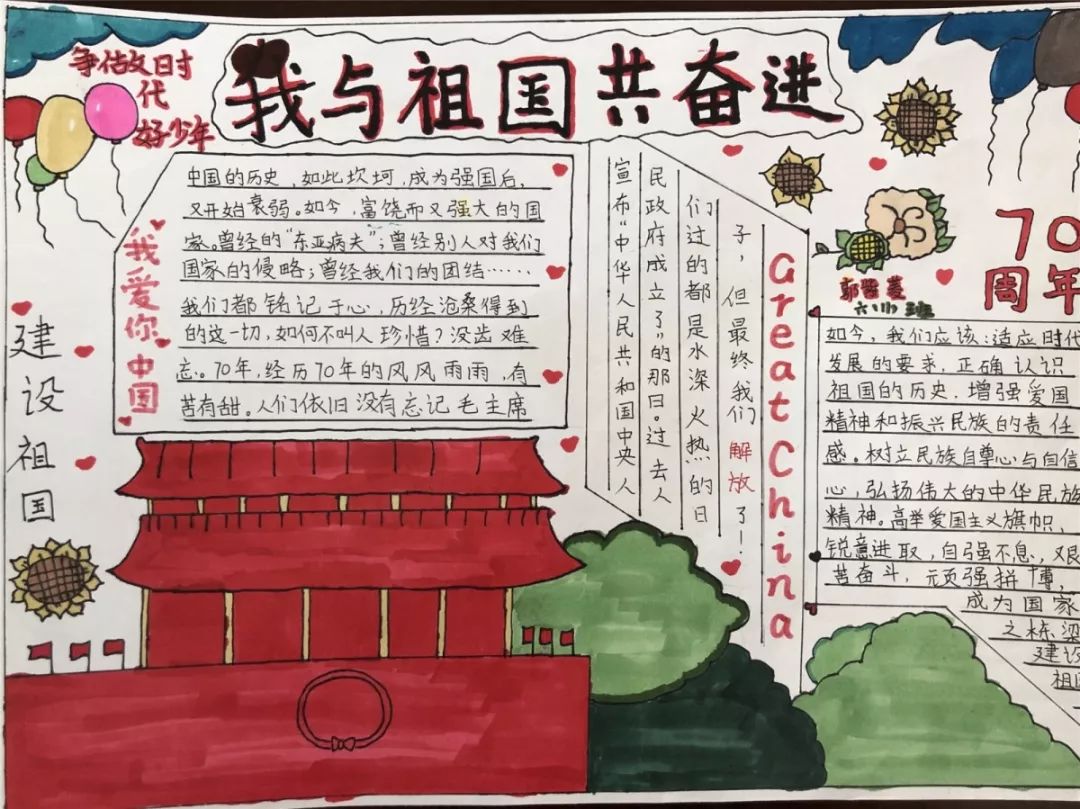 争做时
代
好少年
我与祖国共奋进
我爱你中国
中国的历史,如此坎坷,成为强国后,
又开始衰弱。如今,富饶而又强大的国
家。曾经的“东亚病夫”;曾经别人对我们
国家的侵略;曾经我们的团结……
我们都铭记于心,历经沧桑得到
的这一切,如何不叫人珍惜?没齿难
忘。70年,经历70年的风风雨雨,有
苦有甜。人们依旧没有忘记毛主席
宣布“中华人民共和国中央人
民政府成立了”的那日。过去人
们过的都是水深火热的日
子,但最终我们解放了!
Great China
建设祖国
70
周年
如今,我们应该:适应时代
发展的要求,正确认识
祖国的历史,增强爱国
精神和振兴民族的责任
感。树立民族自尊心与自信
心,弘扬伟大的中华民族
精神。高举爱国主义旗帜、
锐意进取,自强不息,艰
苦奋斗,顽强拼搏,
成为国家
之栋梁
建设
祖国